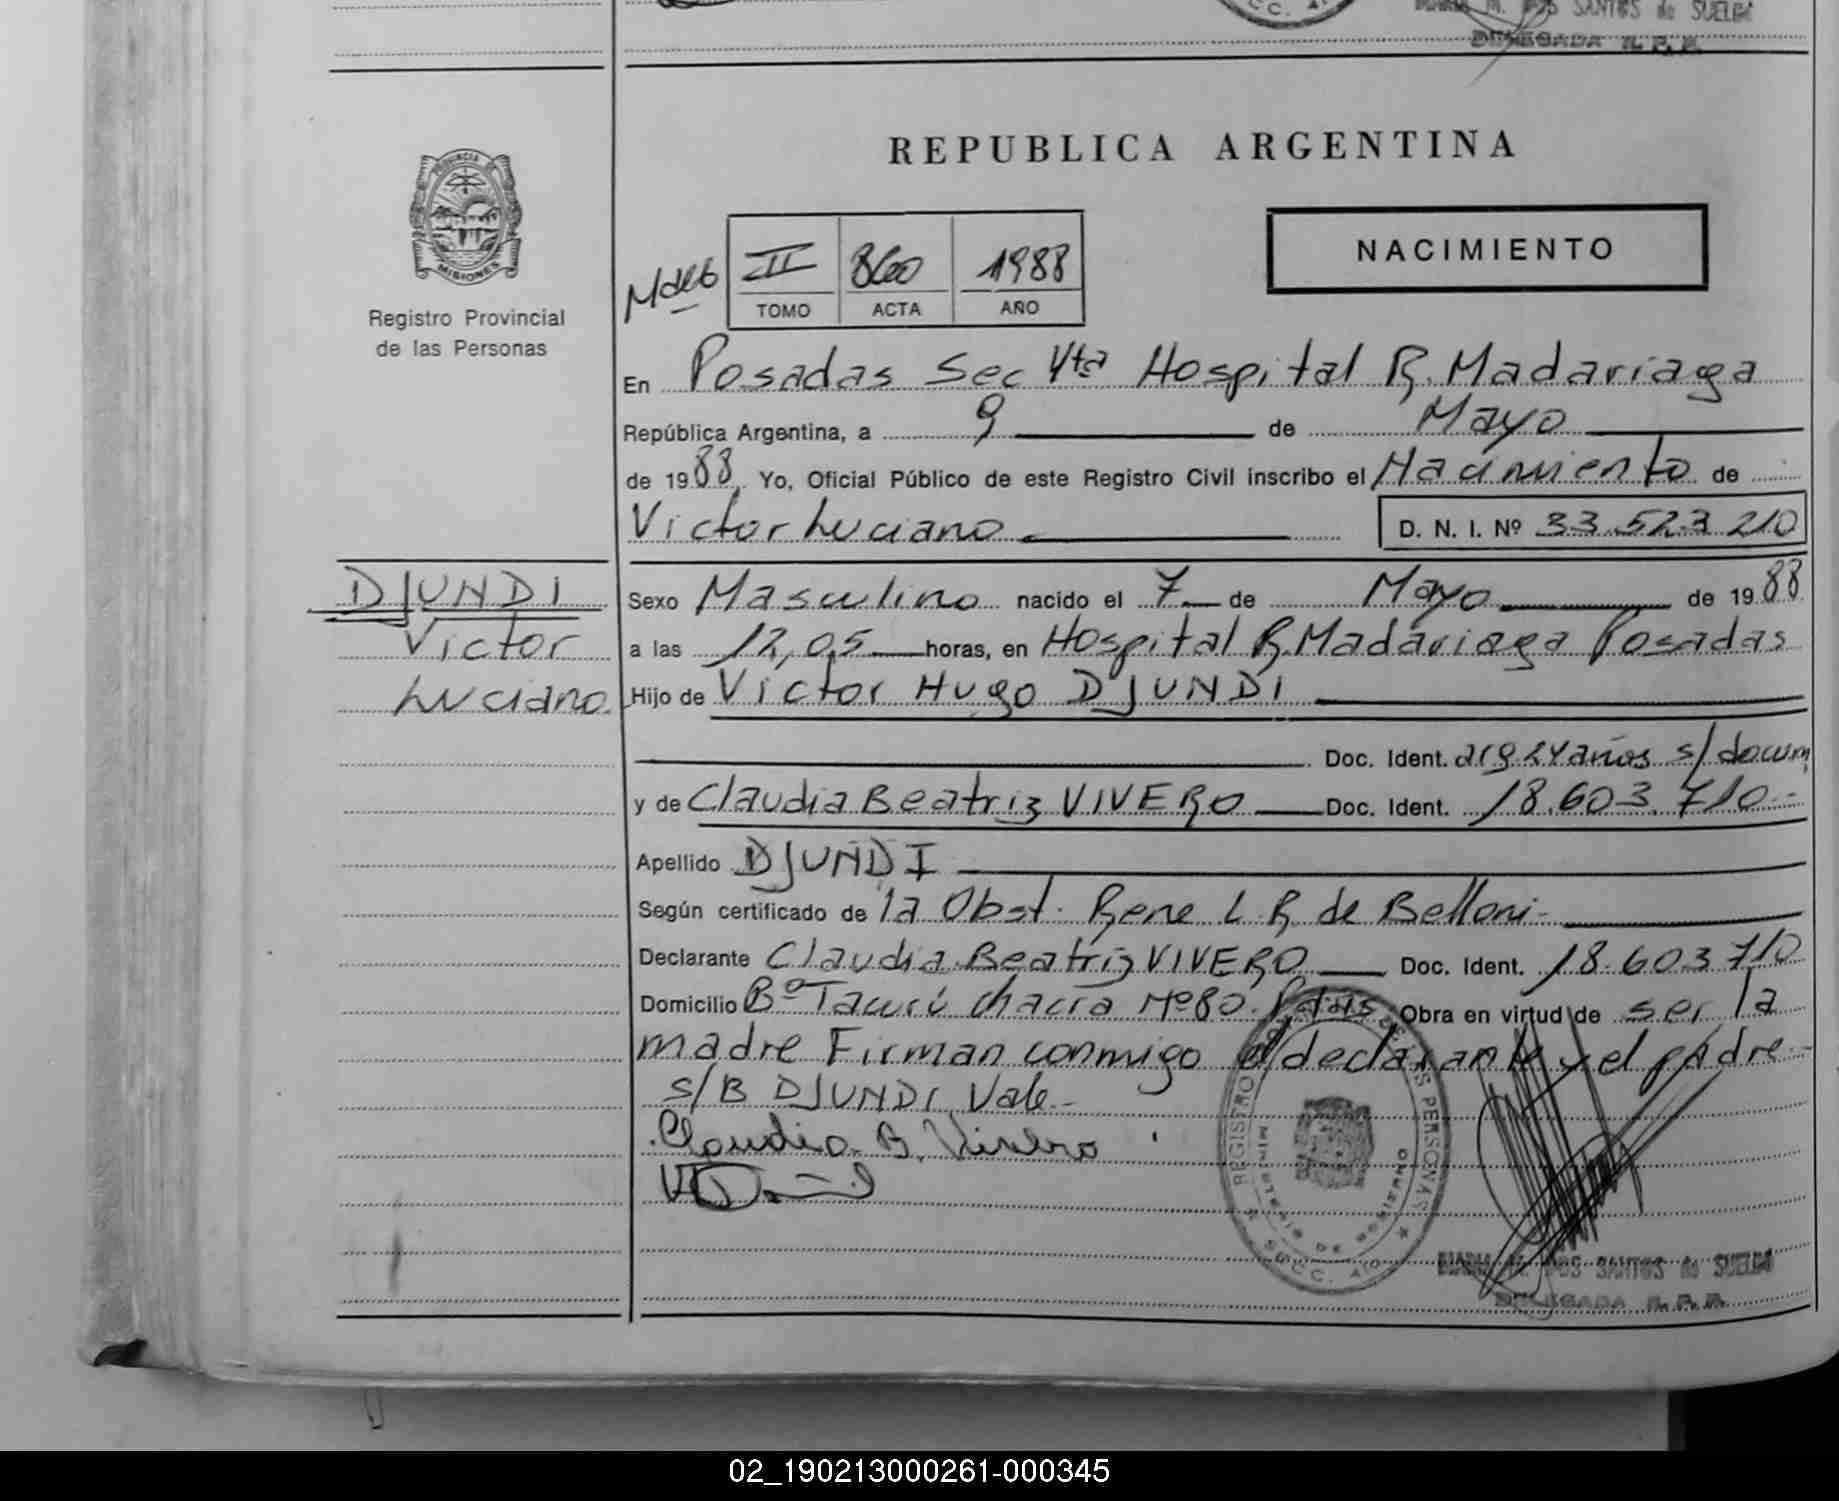 MARIA M. DOS SANTOS de SUELDO
DELEGADA R. P. P.
REPUBLICA ARGENTINA
PROVINCIA DE
MISIONES
Registro Provincial
de las Personas
II 860 1988
TOMO ACTA AÑO
NACIMIENTO
En Posadas Sec 4ta Hospital R. Madariaga
República Argentina, a 9 de Mayo
de 1988 Yo, Oficial Público de este Registro Civil inscribo el Nacimiento de
Victor Luciano D. N. I. Nº 33.523.210
DJUNDI
Victor
Luciano
Sexo Masculino nacido el 7 de Mayo de 1988
a las 12,05 horas, en Hospital R. Madariaga Posadas
Hijo de Victor Hugo DJUNDI
Doc. Ident. arg 24 años s/docum
y de Claudia Beatriz VIVERO Doc. Ident. 18.603.710.-
Apellido DJUNDI
Según certificado de la Obst. Rene L R de Belloni-
Declarante Claudia Beatriz VIVERO Doc. Ident. 18.603.710
Domicilio Bº Tacurú chacra Nº 80. Pdas Obra en virtud de ser la
madre Firman conmigo el declarante y el padre.-
s/B DJUNDI Vale.-
Claudia B. Vivero
REGISTRO DE LAS PERSONAS
MINISTERIO DE GOBIERNO
SECC. 4ta
MARIA M. DOS SANTOS de SUELDO
DELEGADA R. P. P.
02_190213000261-000345